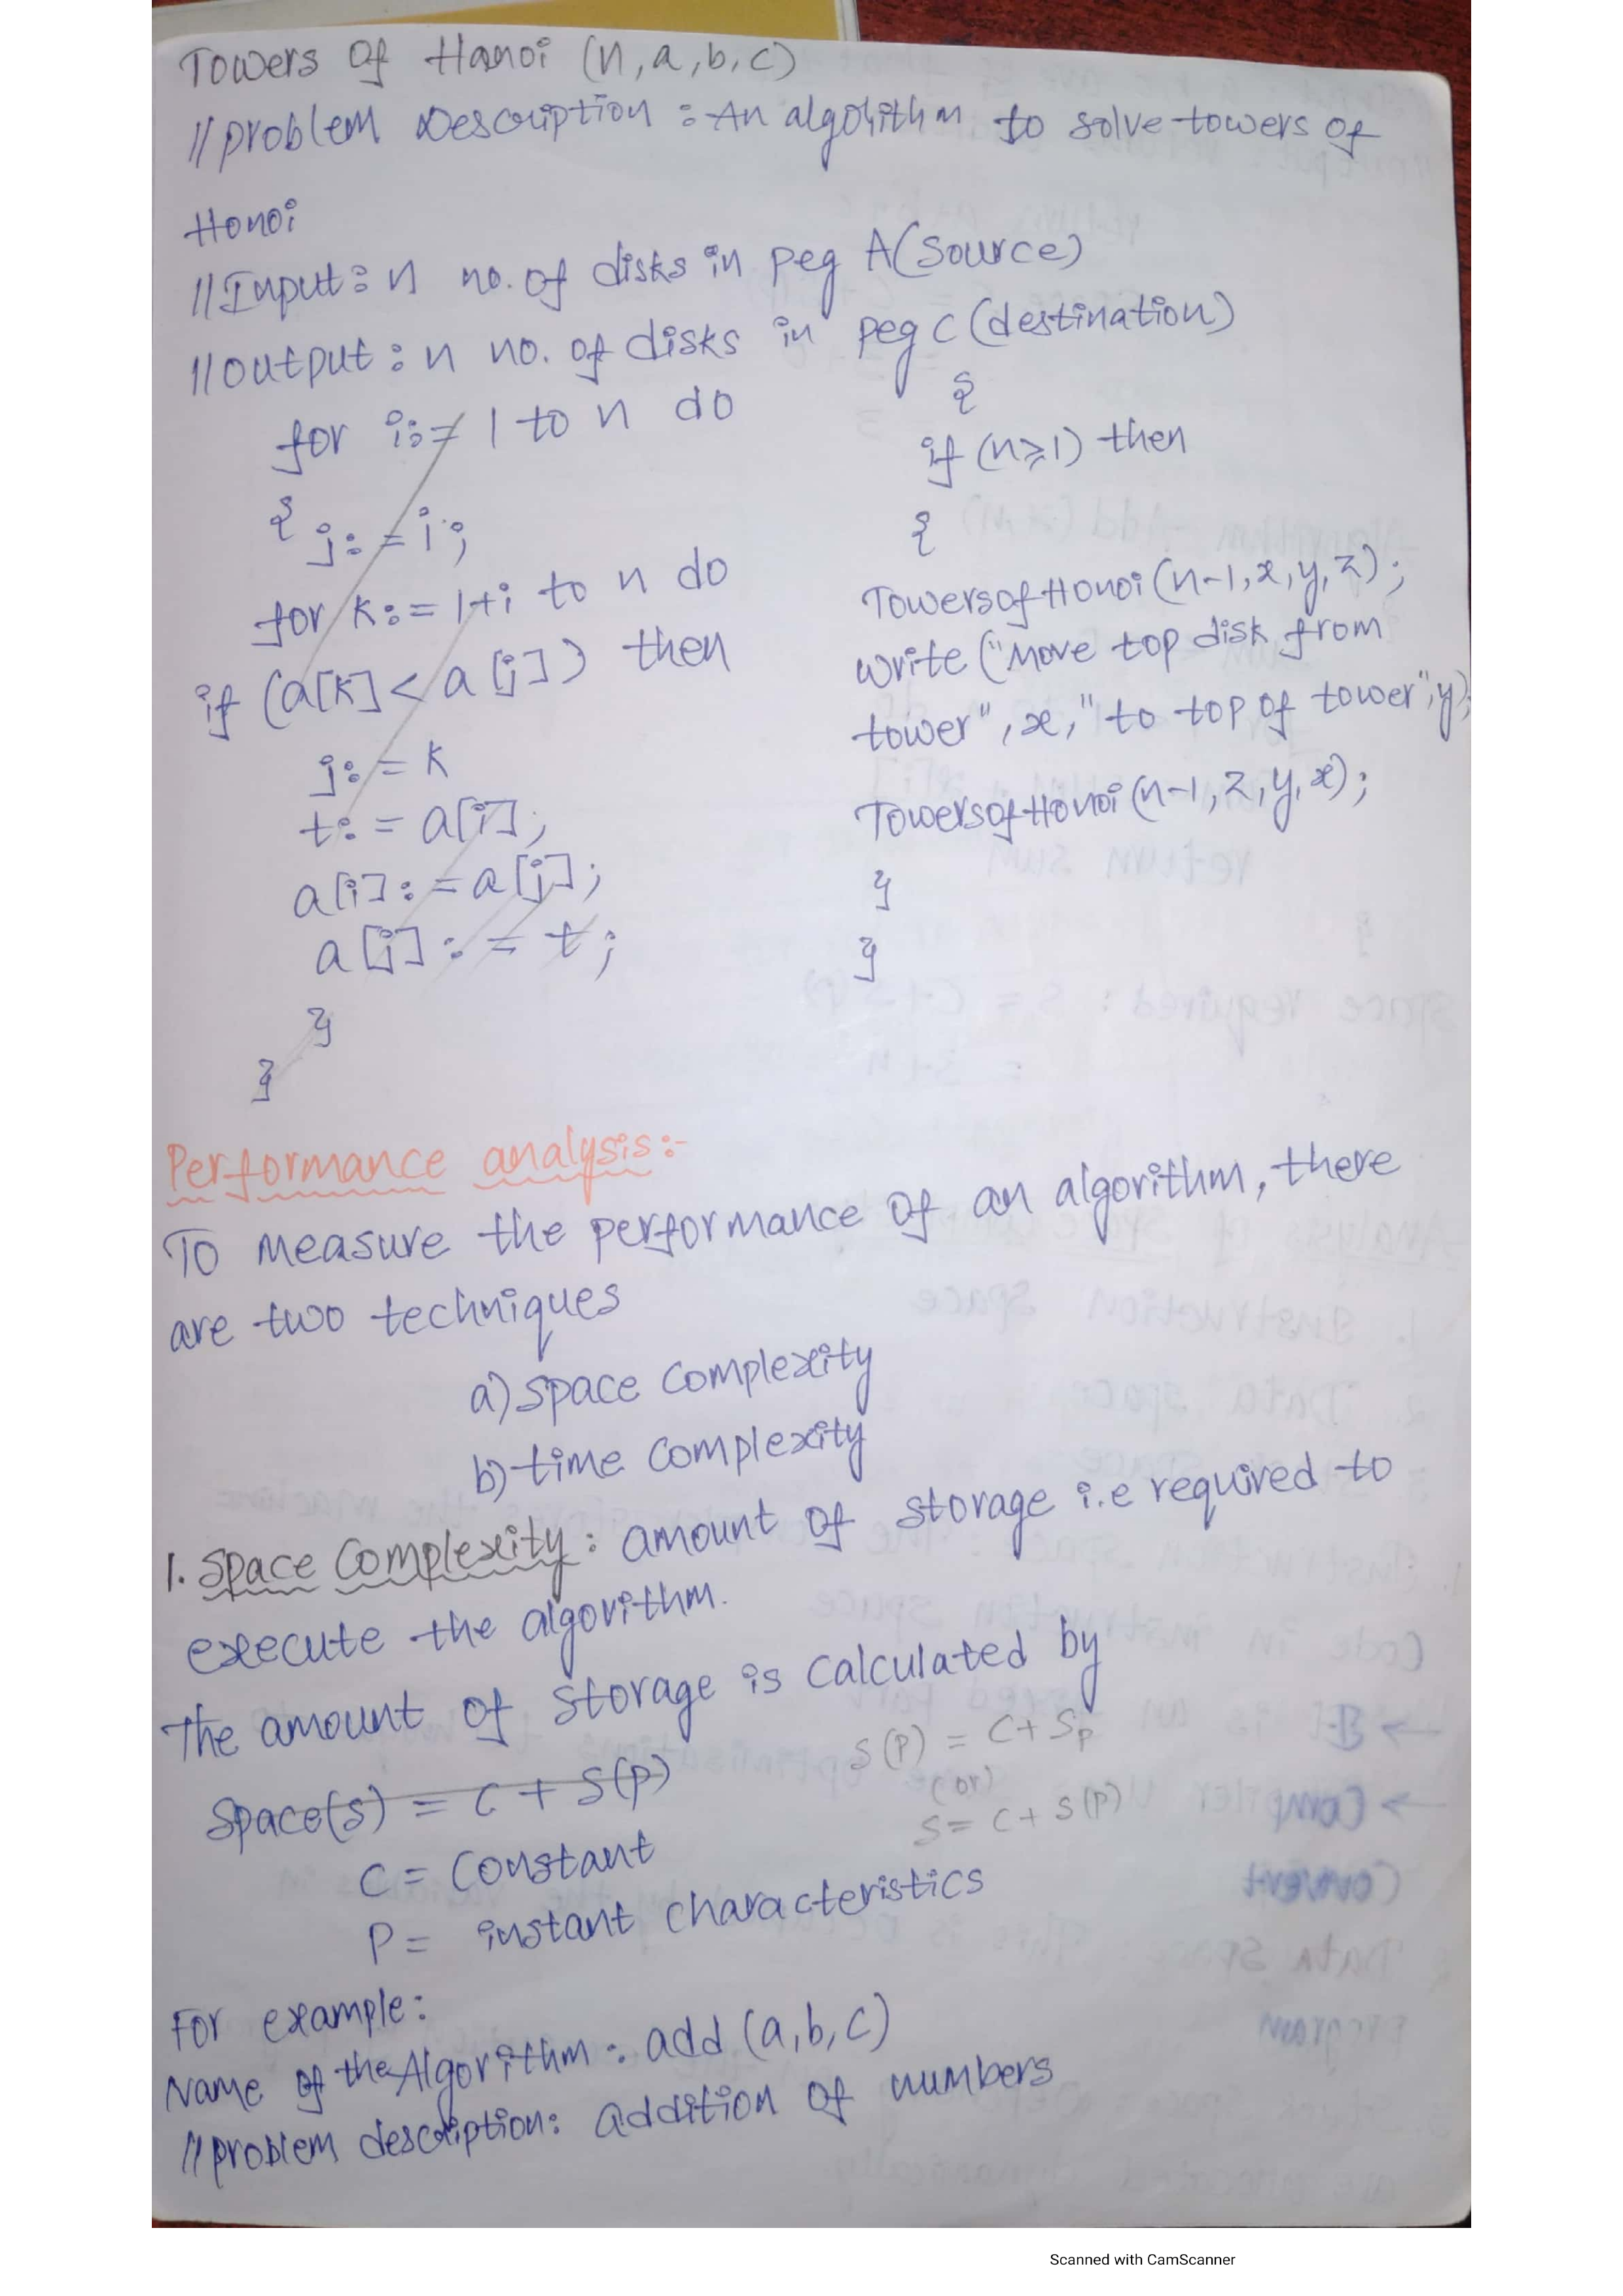 Towers Of Hanoi (n,a,b,c)
//problem Description : An algorithm to solve towers of
Honoi
//Input: n no. of disks in peg A(Source)
//output: n no. of disks in peg C (destination)
for i:= 1 to n do
{
j:=i;
for k:= 1+i to n do
if (a[k] < a[j]) then
j:= k
t:= a[i];
a[i]:=a[j];
a[j]:= t;
}
}
{
if (n≥1) then
{
TowersofHonoi(n-1,x,y,z);
write ("Move top disk from
tower", x, " to top of tower", y);
TowersofHonoi(n-1, z,y,x);
}
}
Performance analysis:-
To measure the performance of an algorithm, there
are two techniques
a) space complexity
b) time complexity
1. Space Complexity: amount of storage i.e required to
execute the algorithm.
The amount of storage is calculated by
Space(s) = C + S(P)
S(P) = C + Sp
(or)
S = C + S(P)
C = Constant
P = instant characteristics
For example:
Name of the Algorithm: add (a,b,c)
//problem description: addition of numbers
Scanned with CamScanner